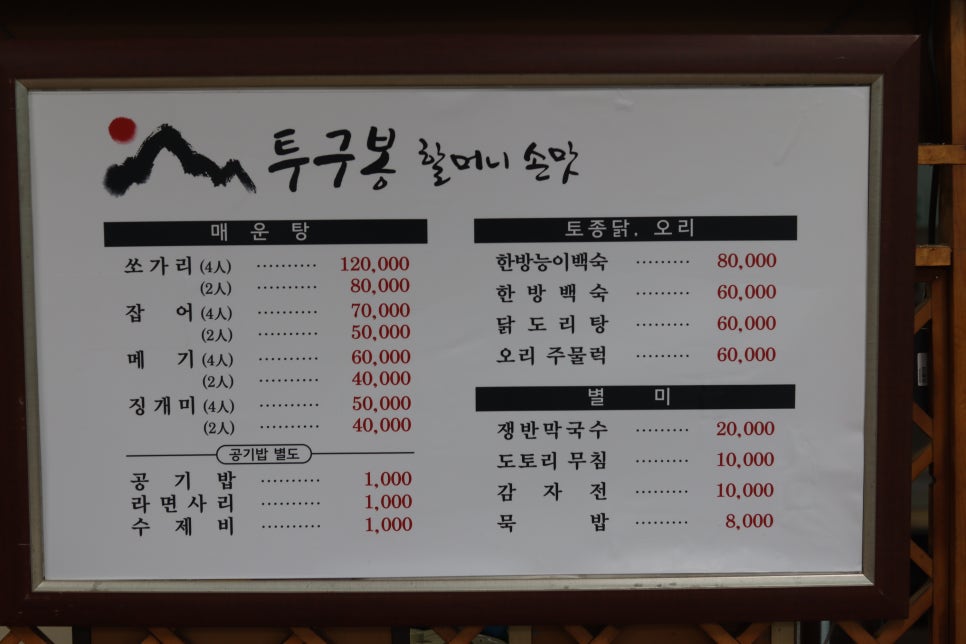 투구봉 할머니 손맛
매운탕
쏘가리 (4人) ·········· 120,000
(2人) ·········· 80,000
잡어 (4人) ·········· 70,000
(2人) ·········· 50,000
메기 (4人) ·········· 60,000
(2人) ·········· 40,000
징개미 (4人) ·········· 50,000
(2人) ·········· 40,000
공기밥 별도
공기밥 ·········· 1,000
라면사리 ·········· 1,000
수제비 ·········· 1,000
토종닭. 오리
한방능이백숙 ········· 80,000
한방백숙 ········· 60,000
닭도리탕 ········· 60,000
오리 주물럭 ········· 60,000
별미
쟁반막국수 ········· 20,000
도토리 무침 ········· 10,000
감자전 ········· 10,000
묵밥 ········· 8,000